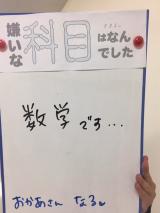 嫌いな科目はなんでしたか
数学です…
おかあさん なるレ